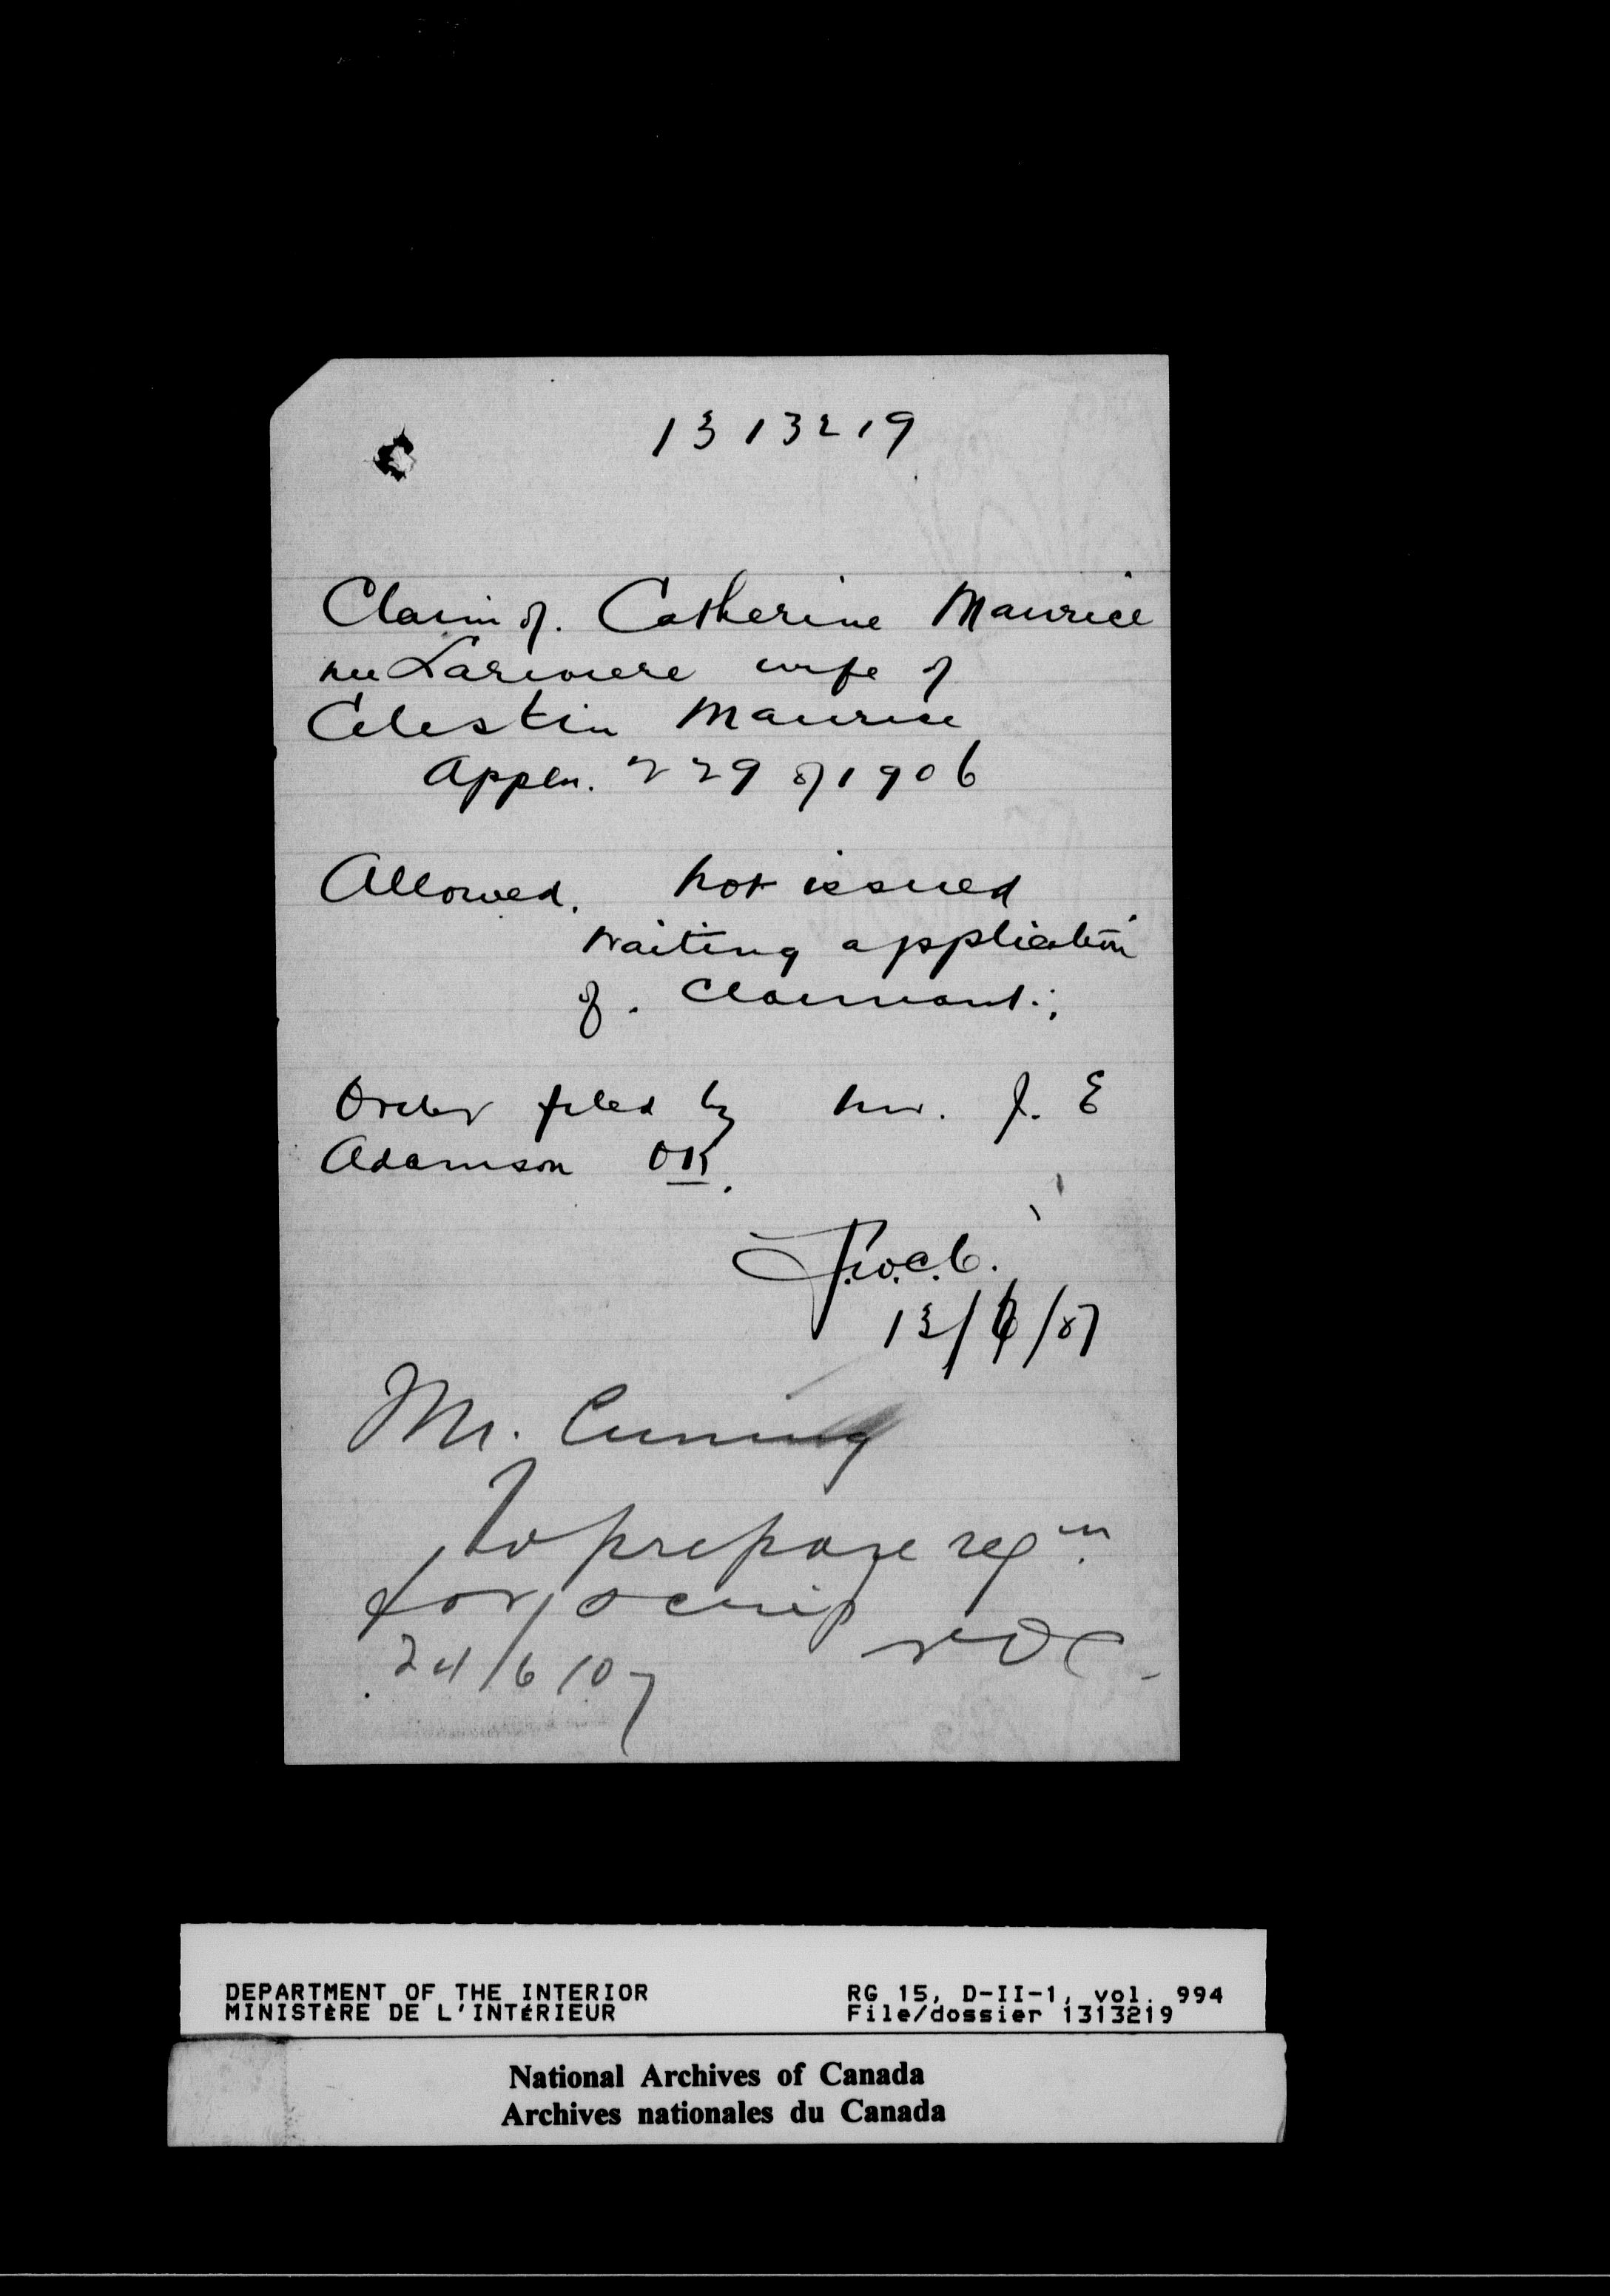 1313219
Claim of. Catherine Maurice
nee Lariviere wife of
Celestin Maurice
Appln. 229 of 1906
Allowed. not issued
Waiting application
of. Claimant.
Order filed by Mr. J. E
Adamson OK.
13/6/07
Mr. Cuming
To prepare reqn.
for scrip
24/6/07
DEPARTMENT OF THE INTERIOR RG 15, D-II-1, vol. 994
MINISTÈRE DE L'INTÉRIEUR File/dossier 1313219
National Archives of Canada
Archives nationales du Canada